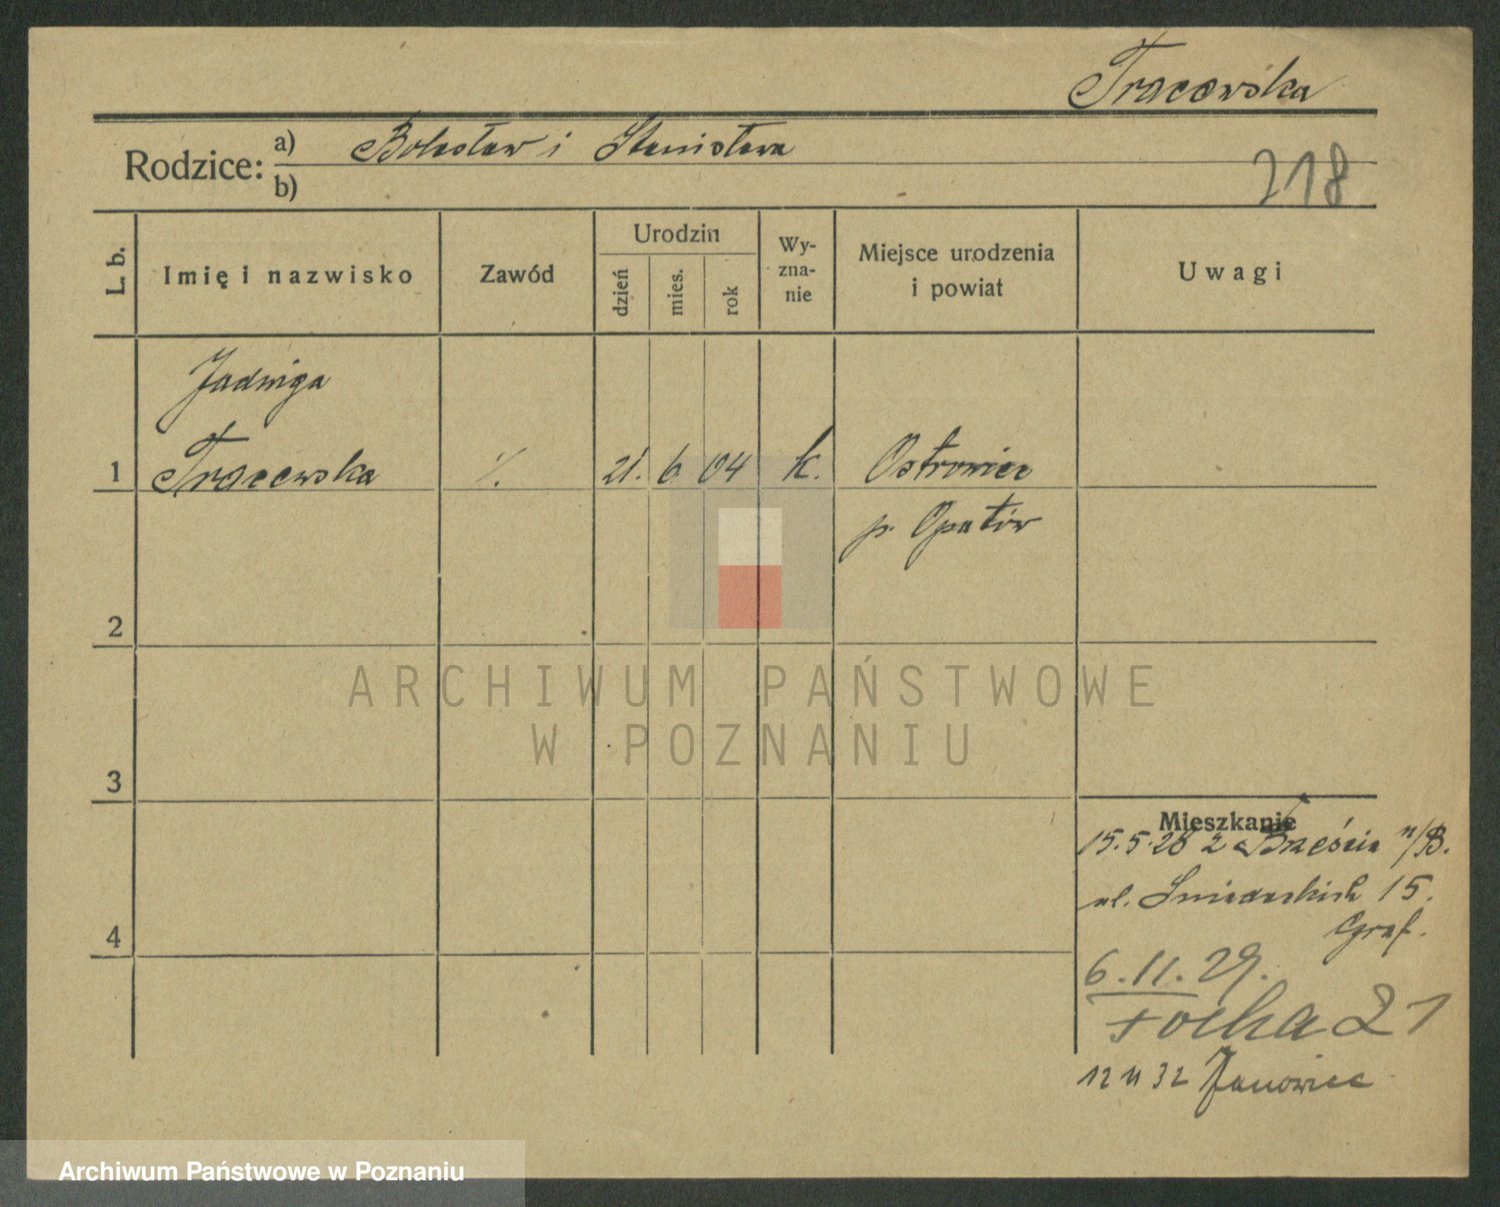 Tracewska
Rodzice: a) Bolesław i Stanisława
b)
218
L. b. Imię i nazwisko Zawód Urodzin dzień mies. rok Wy-zna-nie Miejsce urodzenia i powiat Uwagi
Jadwiga
1 Tracewska ·/. 21. 6 04 k. Ostrowiec
p. Opatów
2
3
4
Mieszkanie
15.5.28 z Brześcia n/B.
ul. Śniadeckich 15.
Graf.
6.11.29.
Focha 21
12 11 32 Janowiec
ARCHIWUM PAŃSTWOWE
W POZNANIU
Archiwum Państwowe w Poznaniu